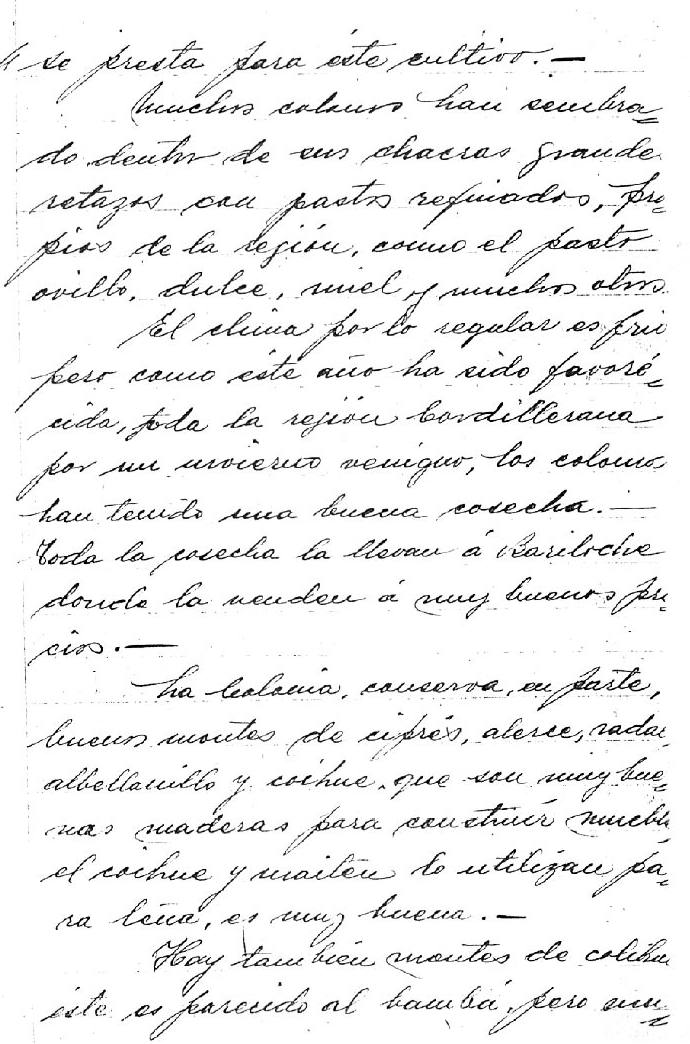 se presta para éste cultivo.—
Muchos colonos han sembra=
do dentro de sus chacras grande
retazos con pastos refinados, pro=
pios de la región, como el pasto
ovillo, dulce, miel y muchos otros
El clima por lo regular es frio
pero como éste año ha sido favoré=
cida, toda la región Cordillerana
por un invierno venigno, los colonos
han tenido una buena cosecha.—
Toda la cosecha la llevan á Bariloche
donde la venden á muy buenos pre=
cios.—
La Colonia, conserva, en parte,
buenos montes de ciprés, alerce, radal
albellanillo y coihue, que son muy bue=
nas maderas para construír mueble
el coihue y maitén lo utilizan pa=
ra léna, es muy buena.—
Hay también montes de colihue
éste es parecido al bambú, pero